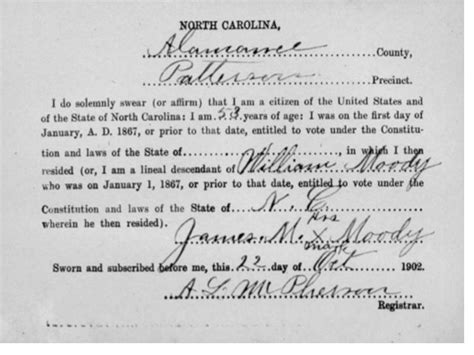 NORTH CAROLINA,
Alamance County,
Patterson Precinct.
I do solemnly swear (or affirm) that I am a citizen of the United States and
of the State of North Carolina: I am 53 years of age: I was on the first day of
January, A. D. 1867, or prior to that date, entitled to vote under the Constitu-
tion and laws of the State of, in which I then
resided (or, I am a lineal descendant of William Moody
who was on January 1, 1867, or prior to that date, entitled to vote under the
Constitution and laws of the State of N. C.
wherein he then resided).
his
James M. X Moody
mark
Sworn and subscribed before me, this 22 day of Oct 1902.
A L McPherson
Registrar.